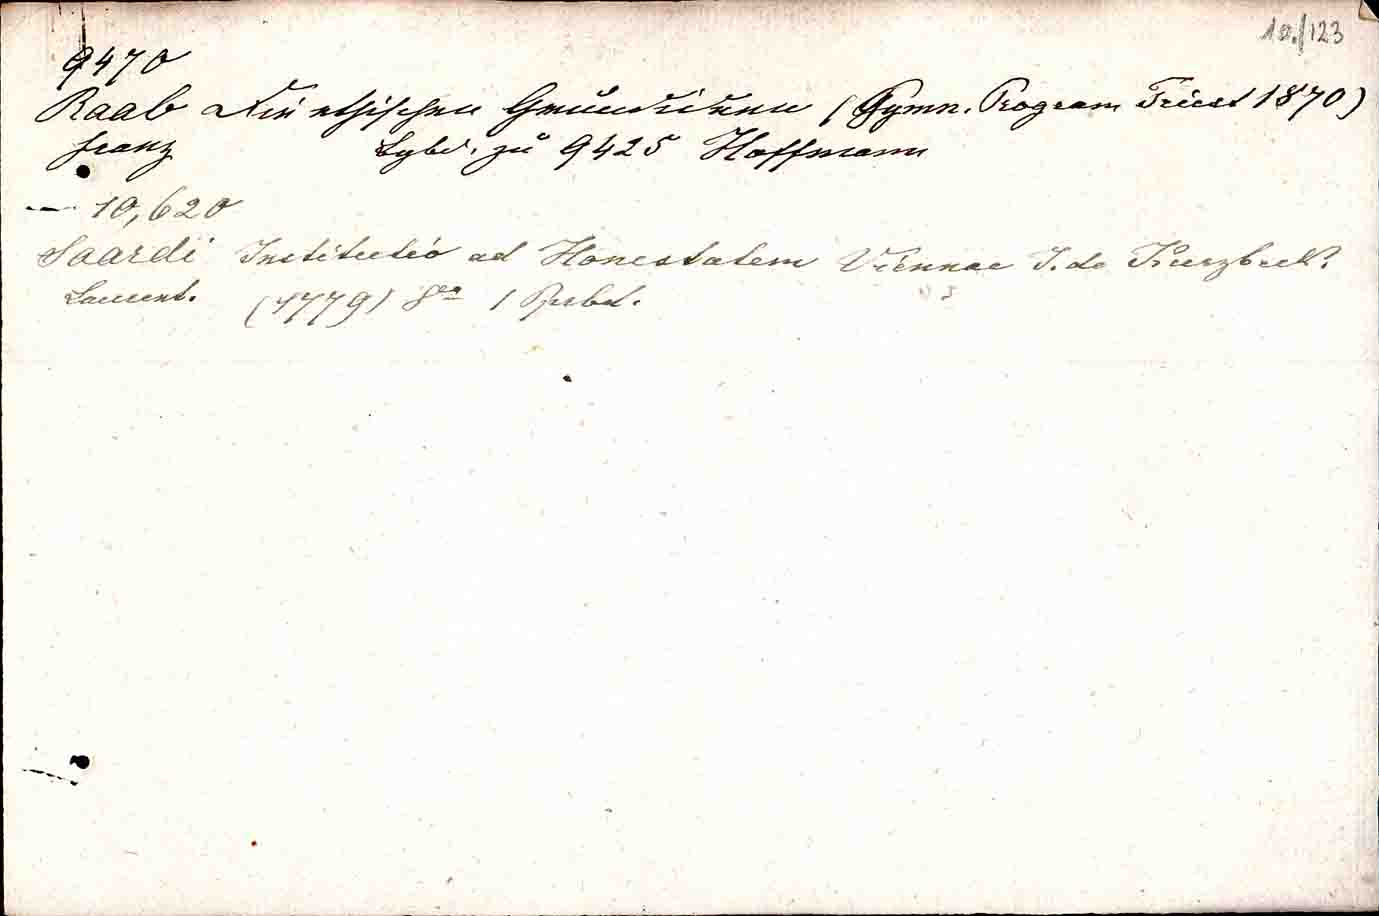 10./123
9470
Raab Die ethischen Grundideen (Gymn. Program Triest 1870)
Franz zu 9425 Hoffmann
10,620
Saardi Institutio ad Honestatem Viennae J. de Kurzbeck.
Laurent. (1779) 8vo 1